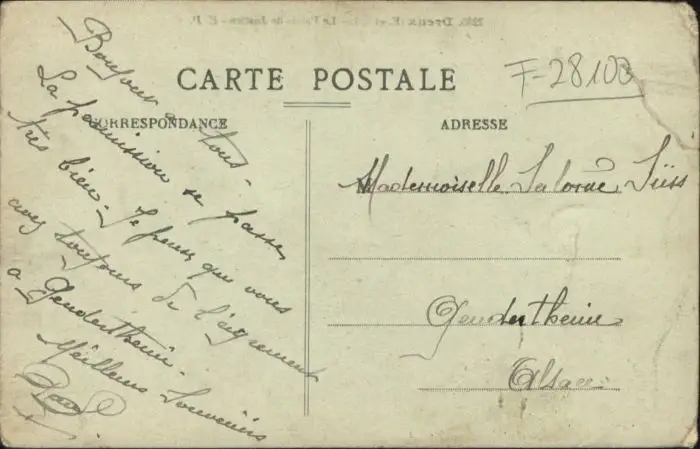 CARTE POSTALE
F-28100
CORRESPONDANCE
ADRESSE
Bonjour a tous -
La permission se passe
très bien - Je pense que vous
avez toujours de l'agrément
a Geudertheim -
Meilleurs Souvenirs
Mademoiselle Salomé Süss
Geudertheim
Alsace